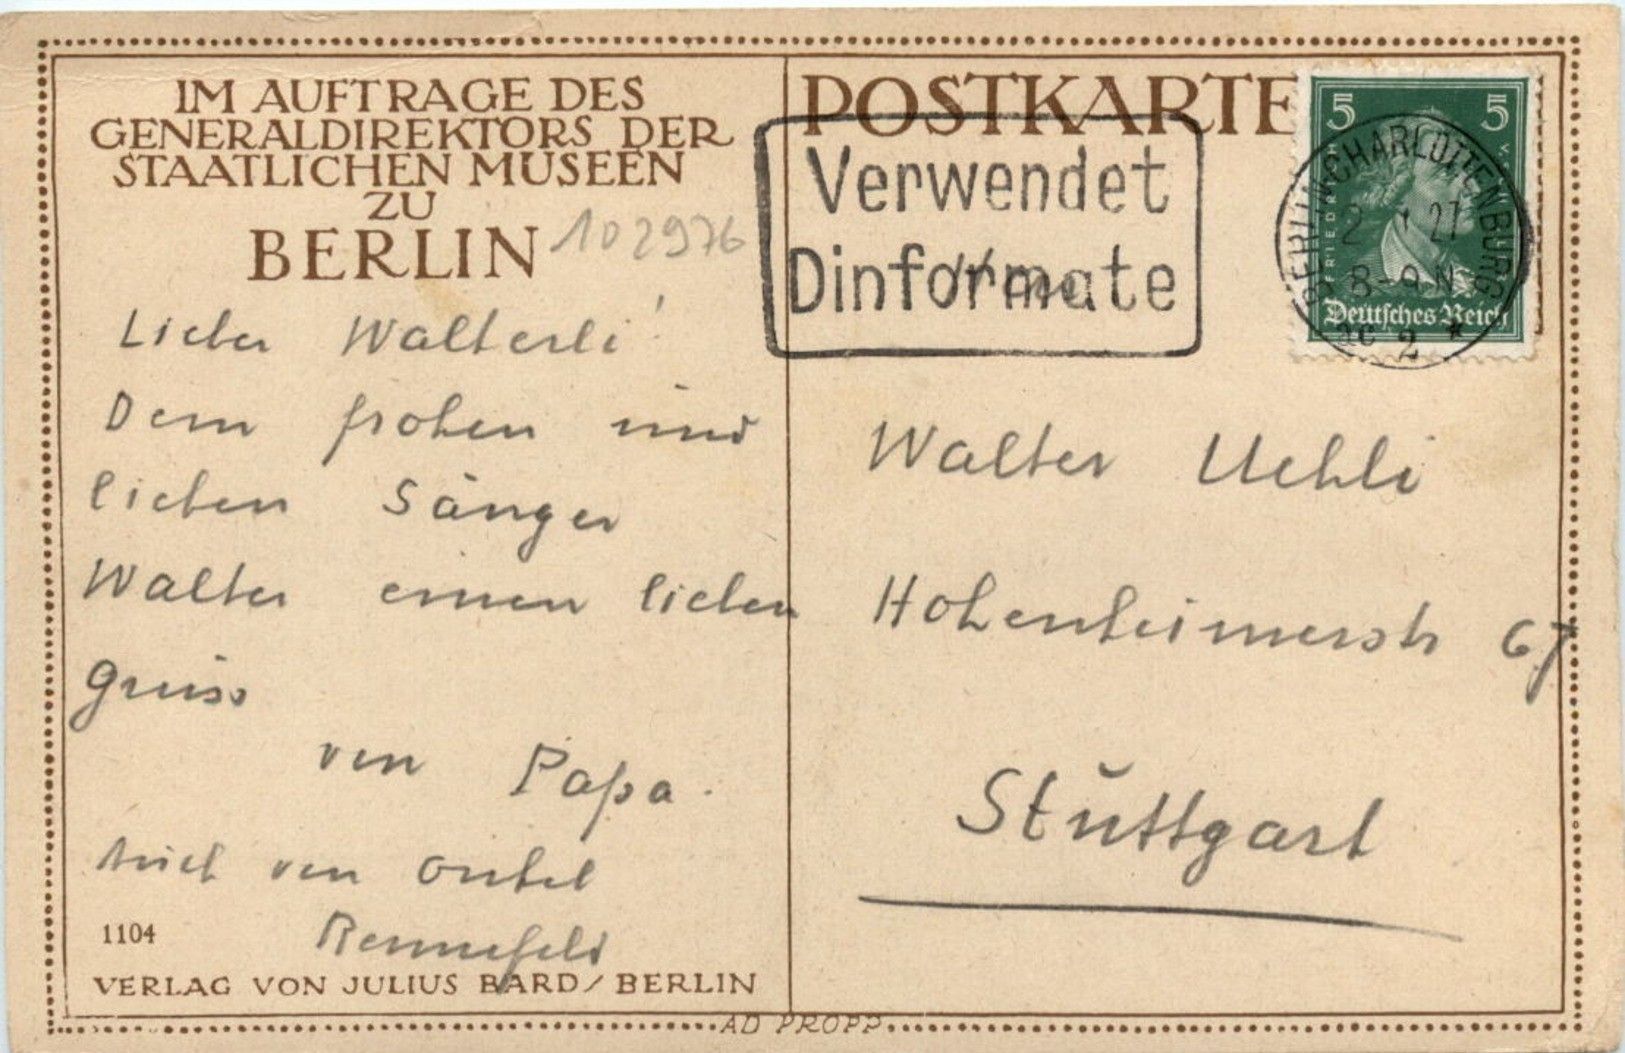 IM AUFTRAGE DES
GENERALDIREKTORS DER
STAATLICHEN MUSEEN
ZU
BERLIN
102976
Lieber Walterli!
Dem frohen und
lieben Sänger
Walter einen lieben
Gruss
von Papa.
Auch von Onkel
Rennefeld
1104
VERLAG VON JULIUS BARD/BERLIN
AD PROPP
POSTKARTE
Verwendet
Dinformate
Herrn
5 5
FRIEDRICH
Deutsches Reich
BERLIN-CHARLOTTENBURG
27
8-9 N
2 *
Walter Uehli
Hohenheimerstr 67
Stuttgart